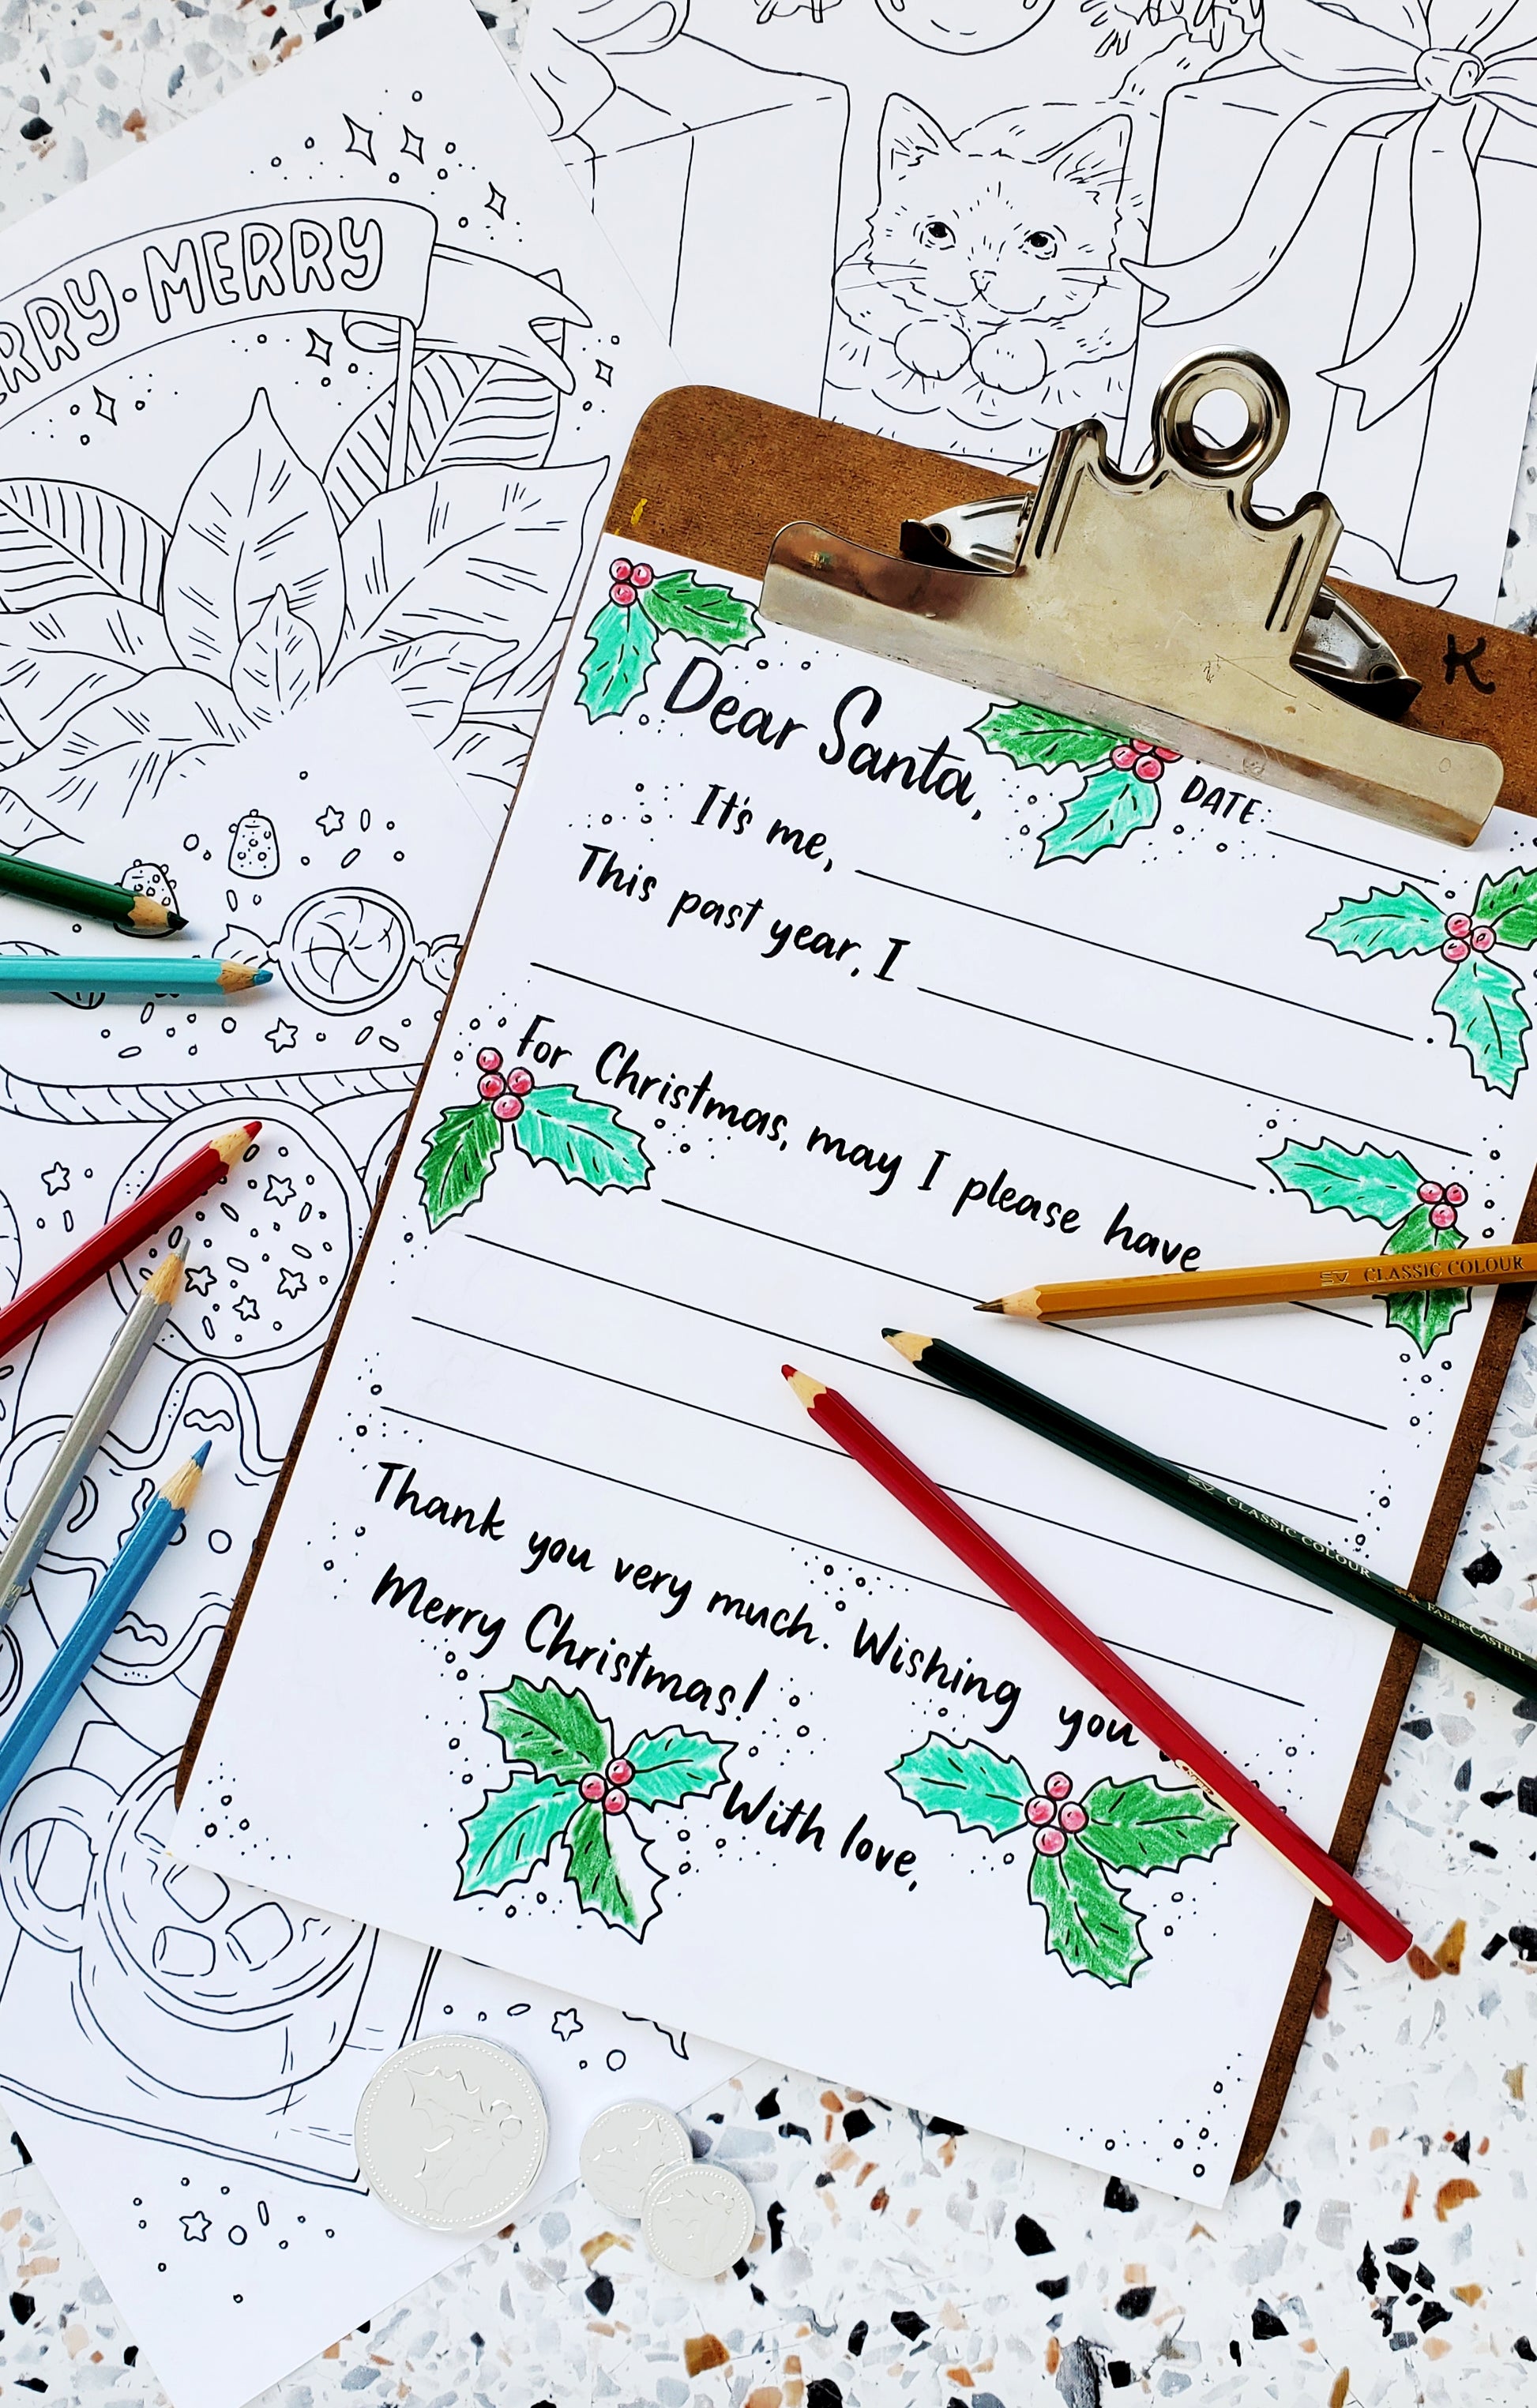 RRY•MERRY
K
Dear Santa,
DATE:
It's me,
This past year, I
.
.
For Christmas, may I please have
CLASSIC COLOUR
CLASSIC COLOUR
FABER-CASTELL
Thank you very much. Wishing you
Merry Christmas!
With love,